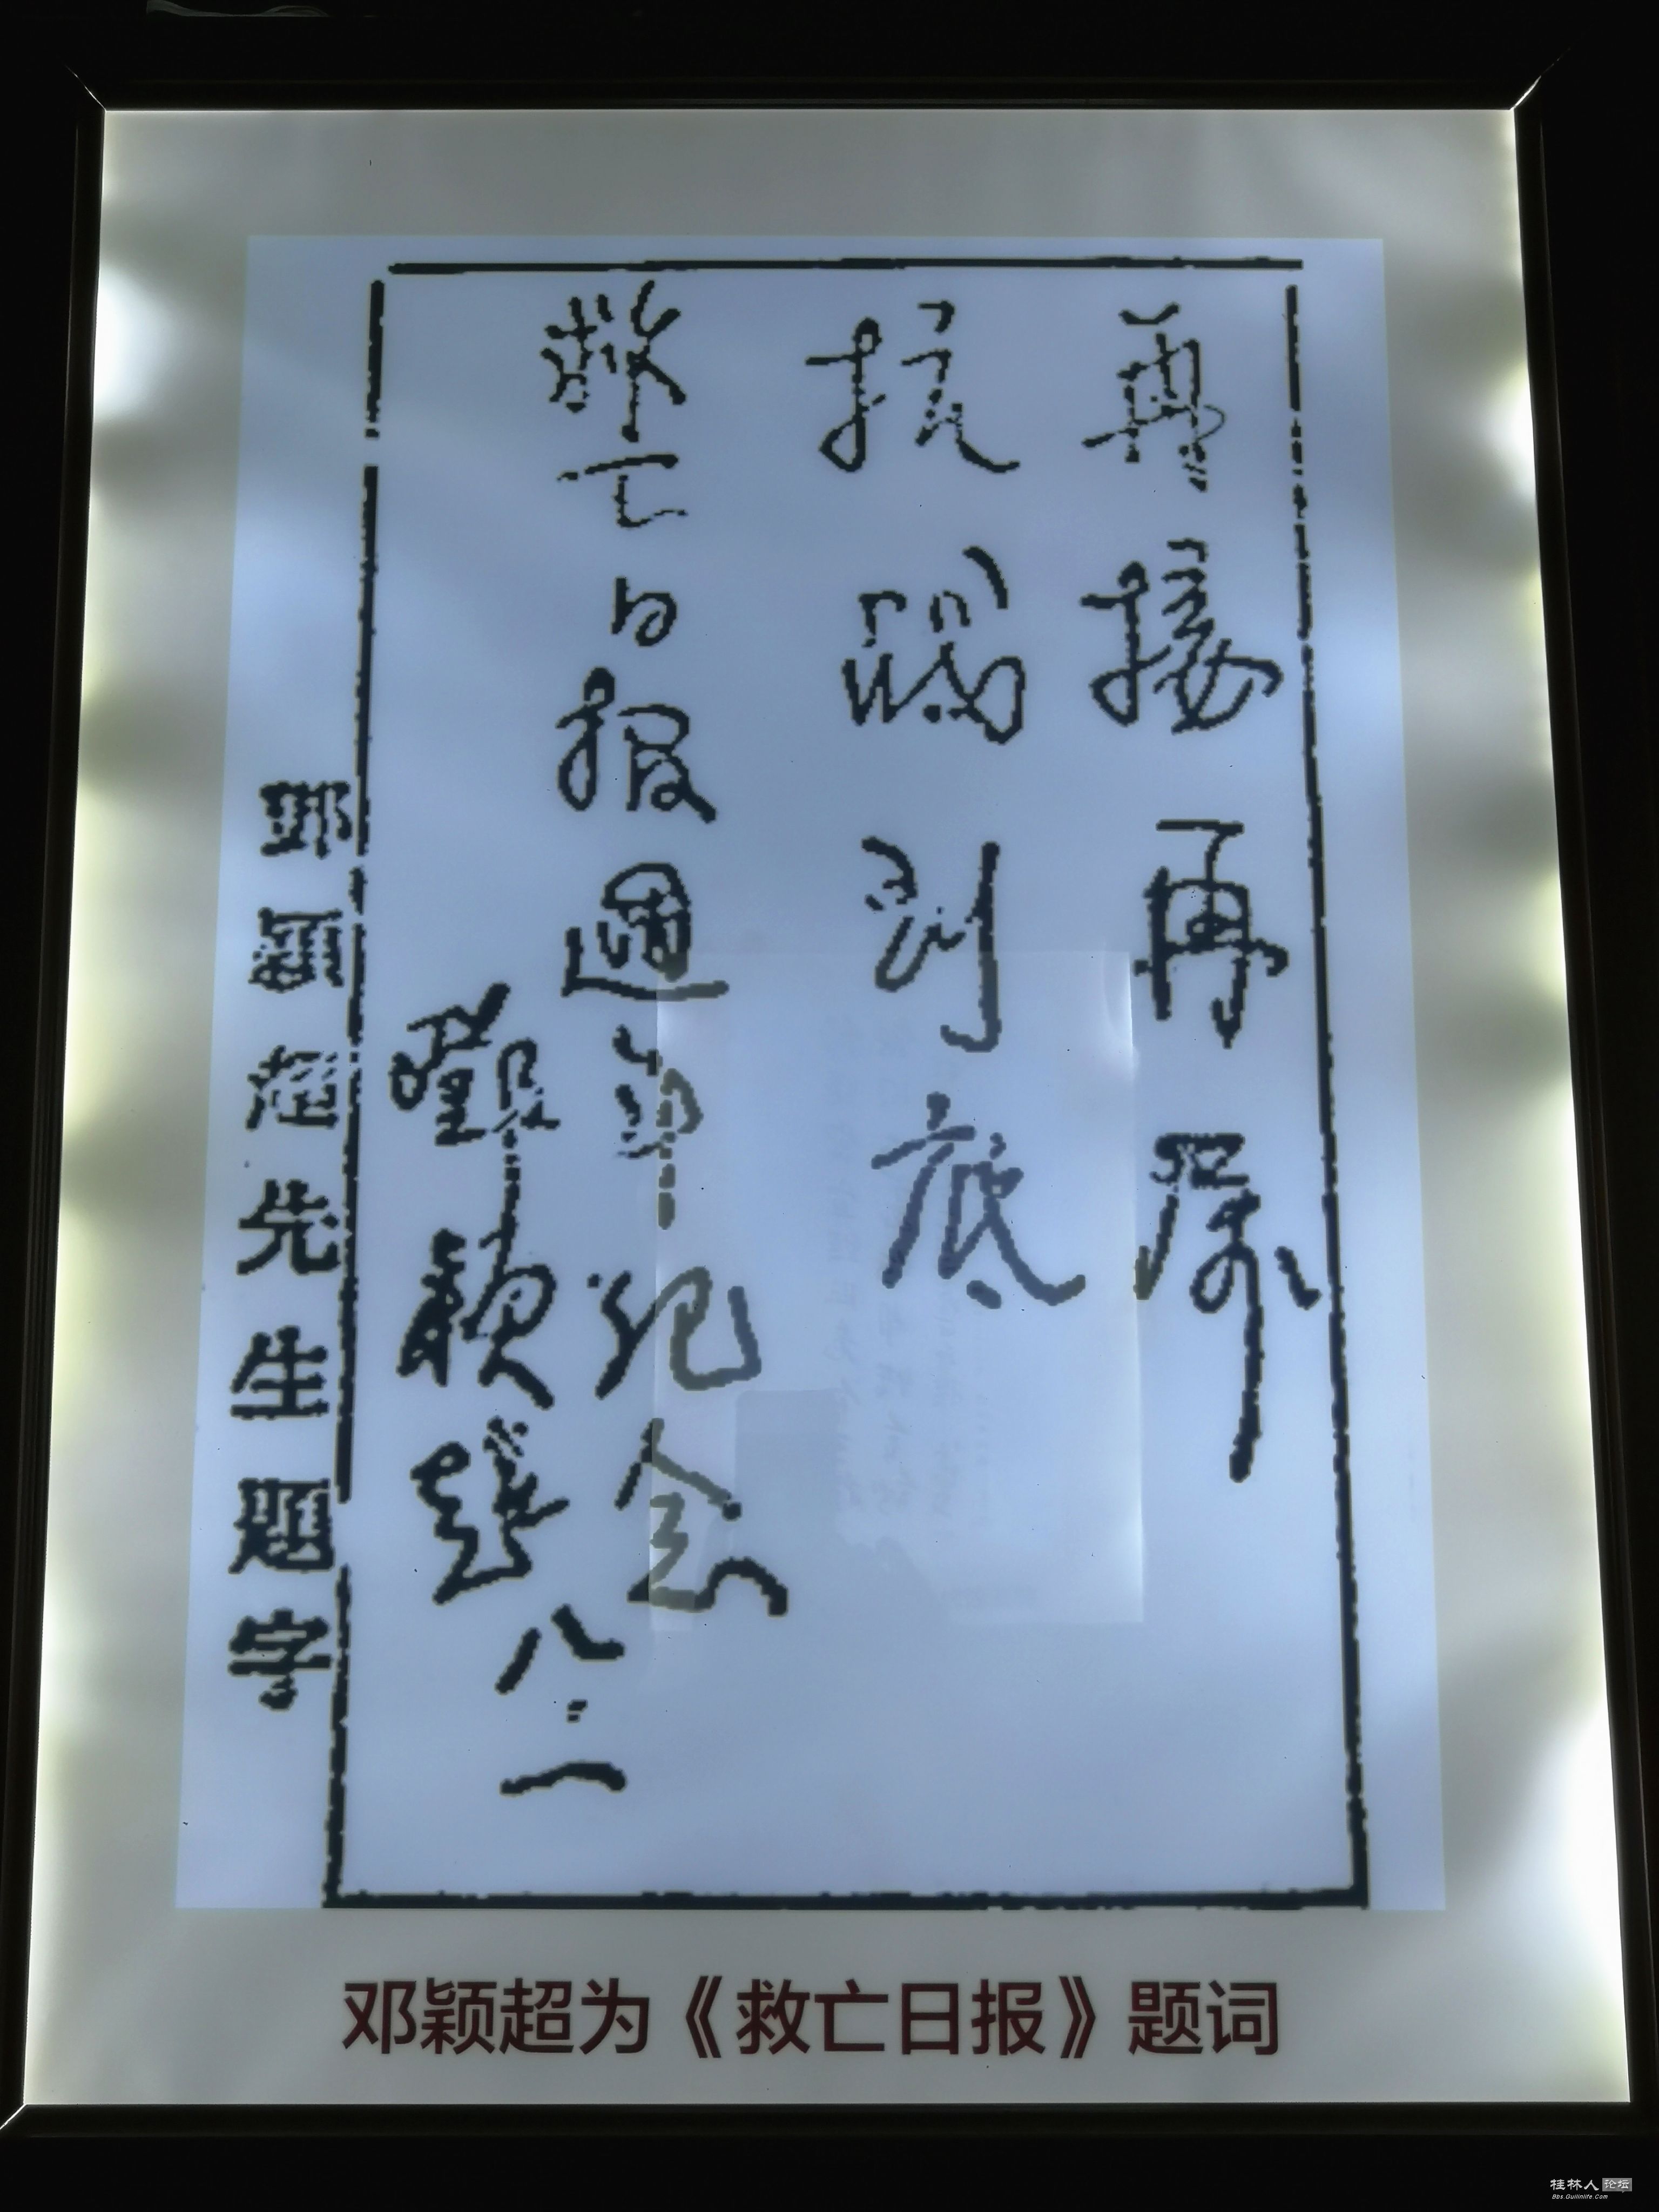 再接再厲
抗戰到底
救亡日報週年紀念
鄧穎超 八.一
鄧穎超先生題字
邓颖超为《救亡日报》题词
桂林人论坛
Bbs.Guilinlife.Com